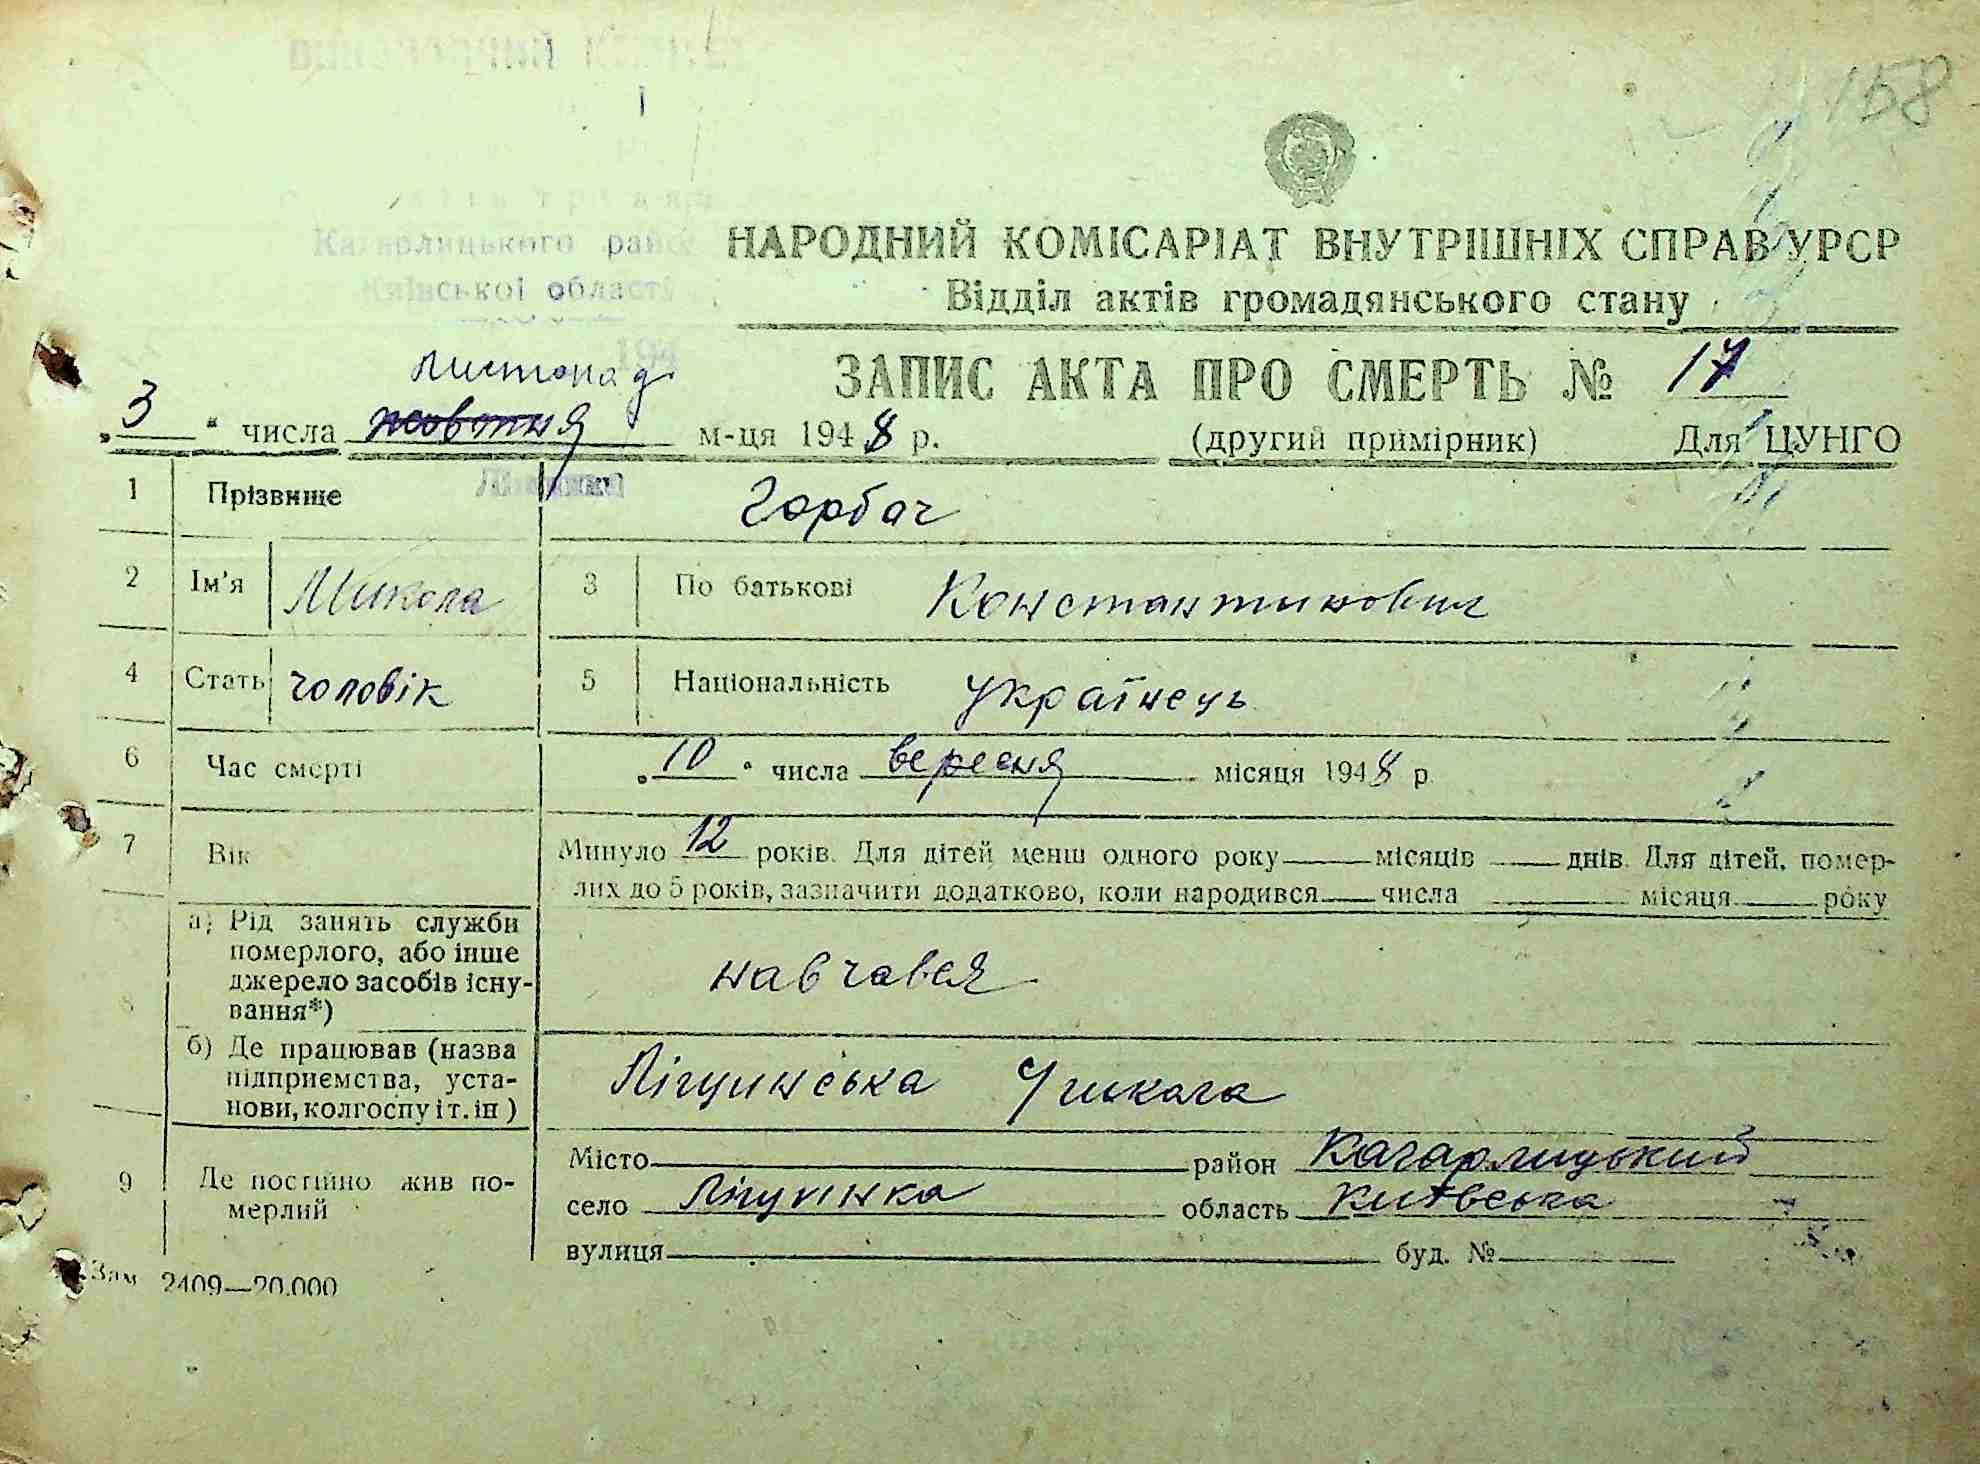 158
Кагарлицького рай
Київської області
194
НАРОДНИЙ КОМІСАРІАТ ВНУТРІШНІХ СПРАВ УРСР
Відділ актів громадянського стану
ЗАПИС АКТА ПРО СМЕРТЬ № 17
листопад
„3“ числа жовтня м-ця 1948 р. (другий примірник) Для ЦУНГО
1 Прізвище Горбач
2 Ім'я Микола 3 По батькові Константинович
4 Стать чоловік 5 Національність українець
6 Час смерті „10“ числа вересня місяця 1948 р
7 Вік Минуло 12 років. Для дітей менш одного року місяців днів. Для дітей, помер-
лих до 5 років, зазначити додатково, коли народився числа місяця року
8 а) Рід занять служби
померлого, або інше
джерело засобів існу-
вання*) навчався
б) Де працював (назва
підприємства, уста-
нови, колгоспу і т. ін) Ліщинська школа
9 Де постійно жив по-
мерлий
Місто район Кагарлицький
село Ліщинка область Київська
вулиця буд. №
Зам 2409—20.000